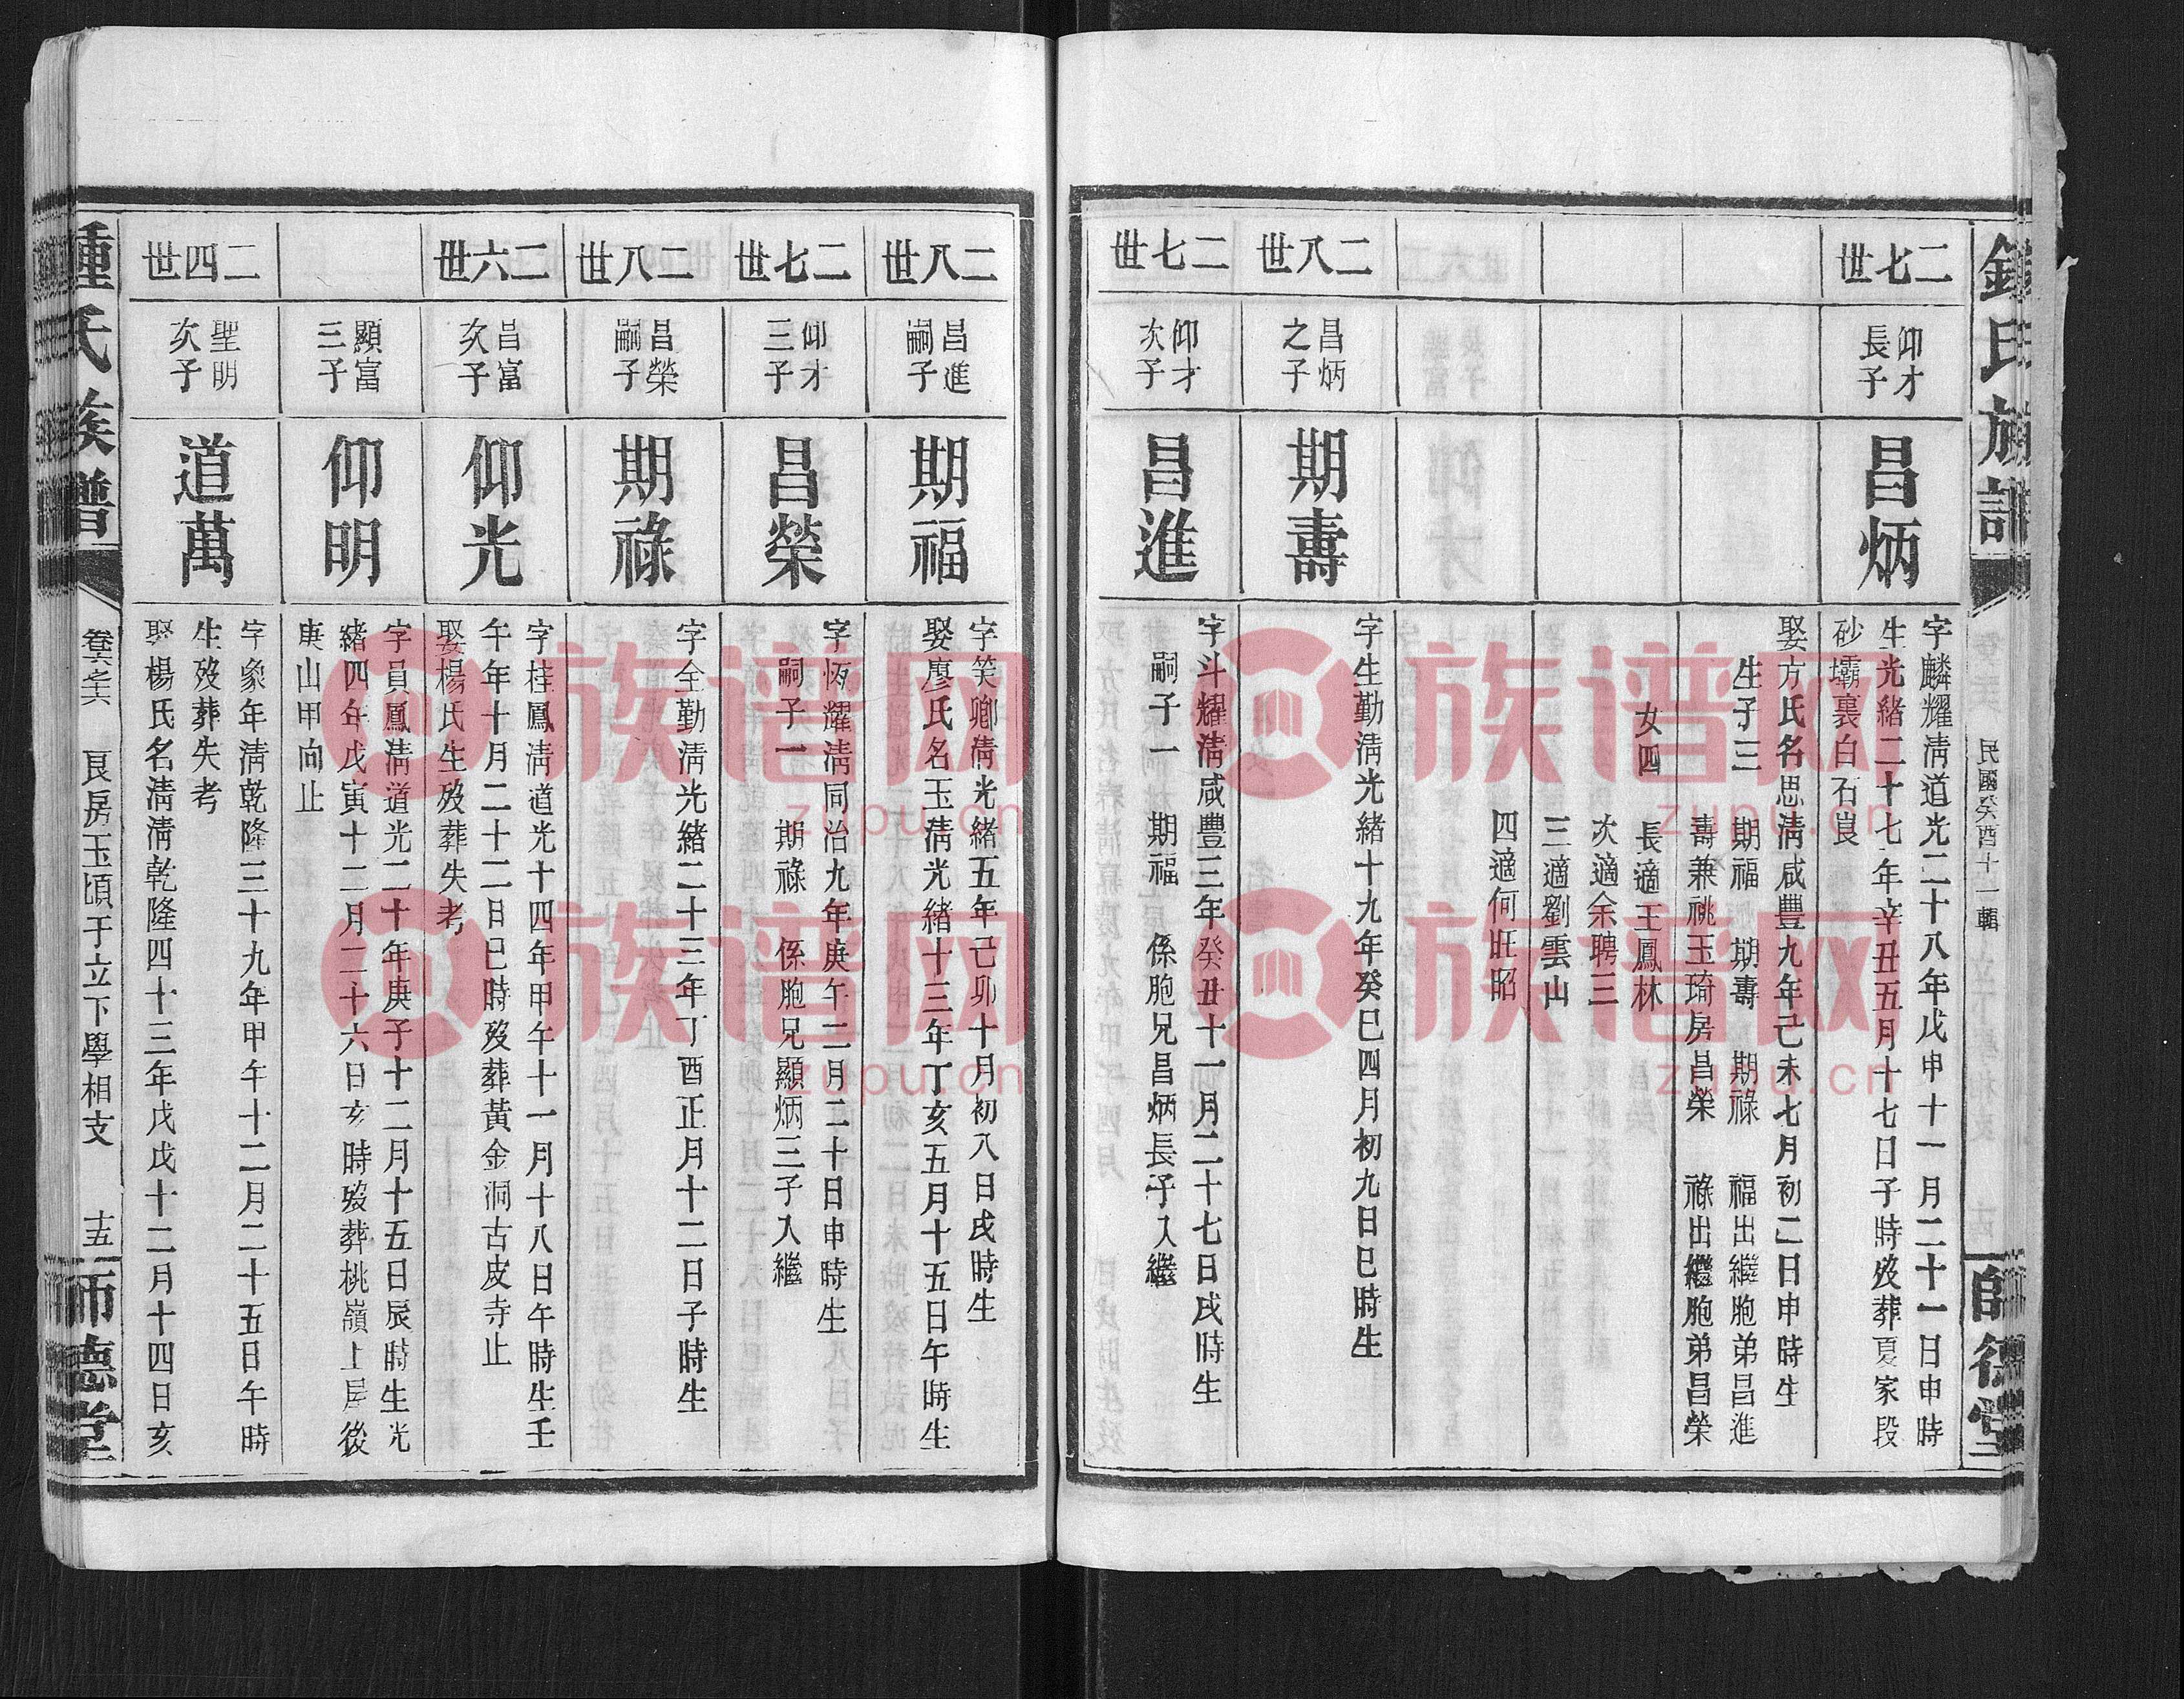 鍾氏族譜
民國癸酉十一輯
師德堂
二七世
仰才
長子
昌炳
字麟耀清道光二十八年戊申十一月二十一日申時
生光緒二十七年辛丑五月十七日子時歿葬夏家段
砂壩裏白石崀
娶方氏名思清咸豐九年己未七月初二日申時生
生子三 期福 期壽 期祿 福出繼胞弟昌進
壽兼祧玉琦房昌榮 祿出繼胞弟昌榮
女四 長適王鳳林
次適余聘三
三適劉雲山
四適何旺昭
二八世
昌炳
之子
期壽
字生勤淸光緒十九年癸巳四月初九日巳時生
二七世
仰才
次子
昌進
字斗耀清咸豐三年癸丑十一月二十七日戌時生
嗣子一 期福 係胞兄昌炳長子入繼
二八世
昌進
嗣子
期福
字笑卿清光緒五年己卯十月初八日戌時生
娶廖氏名玉清光緒十三年丁亥五月十五日午時生
二七世
仰才
三子
昌榮
字恆耀清同治九年庚午二月二十日申時生
嗣子一 期祿 係胞兄顯炳三子入繼
二八世
昌榮
嗣子
期祿
字全勤淸光緒二十三年丁酉正月十二日子時生
二六世
昌富
次子
仰光
字桂鳳淸道光十四年甲午十一月十八日午時生壬
午年十月二十二日巳時歿葬黃金洞古皮寺止
娶楊氏生歿葬失考
顯富
三子
仰明
字員鳳清道光二十年庚子十二月十五日辰時生光
緒四年戊寅十二月二十六日亥時歿葬桃嶺上房後
庚山甲向止
二四世
聖明
次子
道萬
字象年清乾隆三十九年甲午十二月二十五日午時
生歿葬失考
娶楊氏名清淸乾隆四十三年戊戌十二月十四日亥
鍾氏族譜
卷六之六
艮房玉頃于立下學相支
十五
師德堂
族谱网
zupu.cn
族谱网
zupu.cn
族谱网
zupu.cn
族谱网
zupu.cn